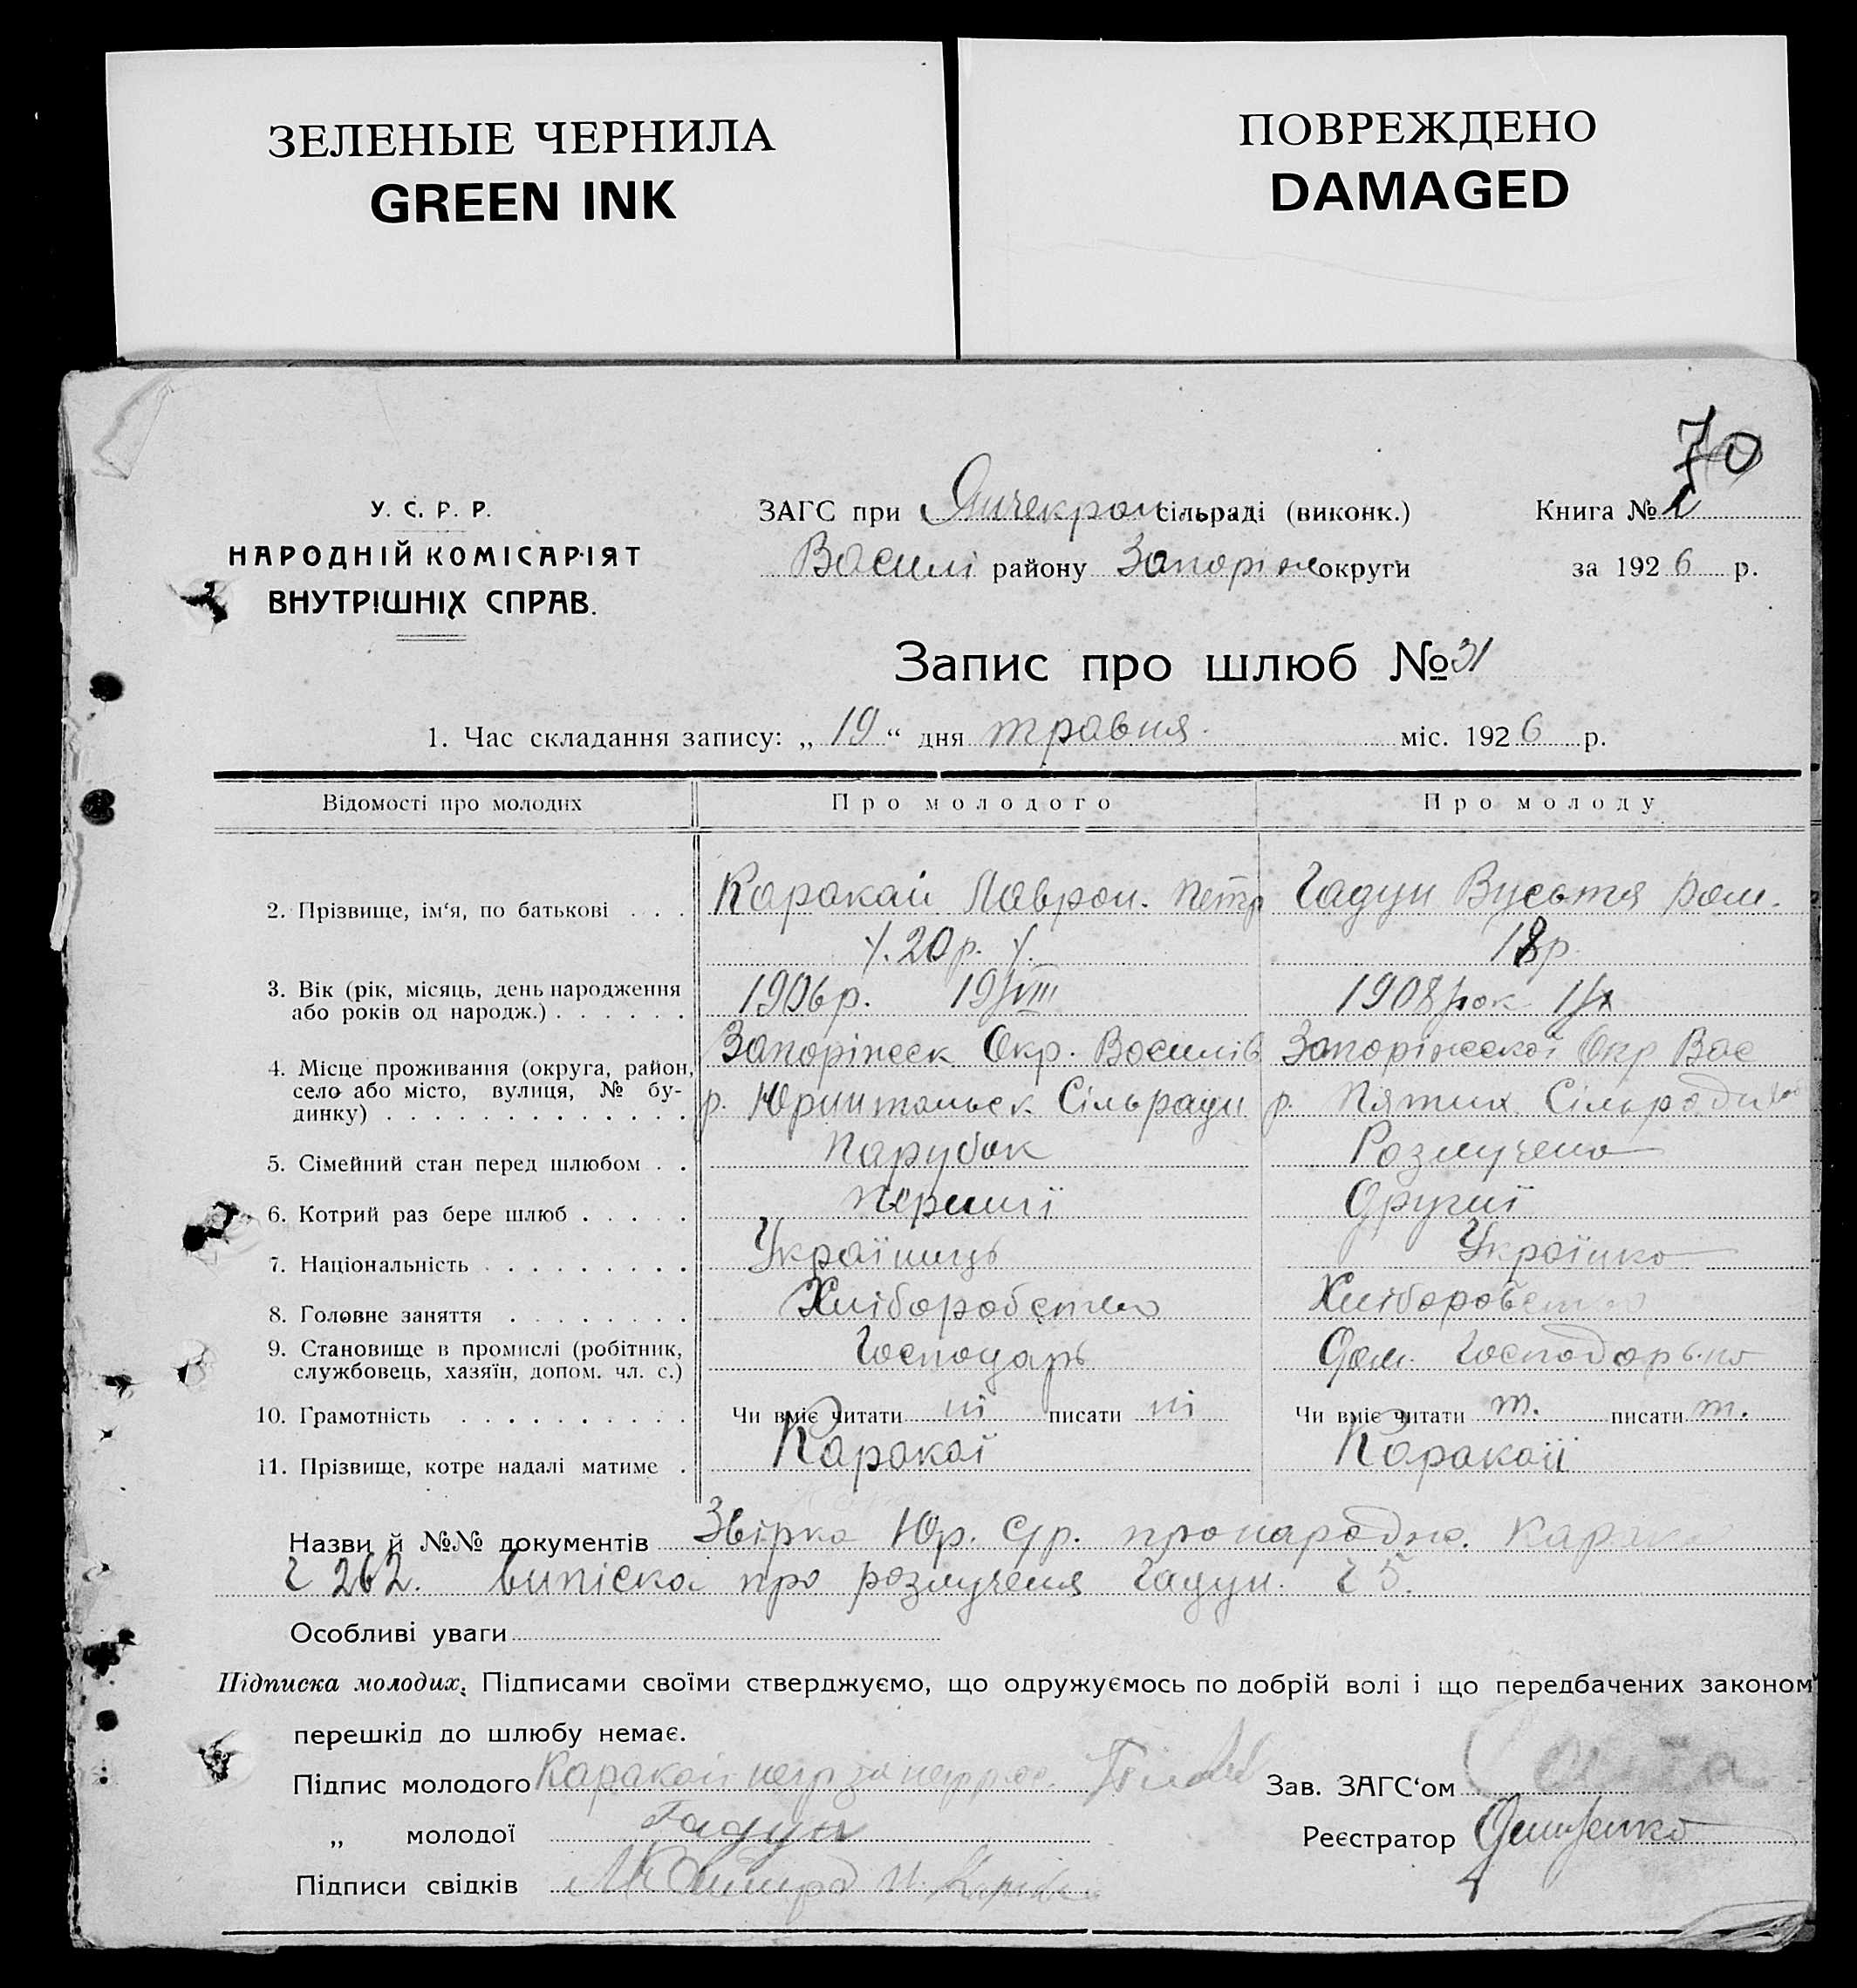 ЗЕЛЕНЫЕ ЧЕРНИЛА
GREEN INK
ПОВРЕЖДЕНО
DAMAGED
70
У. С. Р. Р.
НАРОДНІЙ КОМІСАРІЯТ
ВНУТРІШНІХ СПРАВ.
ЗАГС при Янчекрон сільраді (виконк.)
Василі району Запоріж округи
Книга №
за 1926 р.
Запис про шлюб № 31
1. Час складання запису: „ 19 “ дня травня міс. 1926 р.
Відомості про молодих Про молодого Про молоду
2. Прізвище, ім‘я, по батькові . . . Каракай Лаврон. Петр Гадун Вусьтя Ром.
20 р. 18 р
3. Вік (рік, місяць, день народження або років од народж.) . . . . . . 1906 р. 19/VIII 1908 рок
4. Місце проживання (округа, район, село або місто, вулиця, № будинку) . . . Запоріжеск Окр. Василів Запоріжської Окр Вас
р. Сільради р. Пятих Сільради
5. Сімейний стан перед шлюбом . . Парубок Розлучена
6. Котрий раз бере шлюб . . . . . Перший Другий
7. Національність . . . . . . . . . Українець Українка
8. Головне заняття . . . . . . . . Хліборобство Хліборобство
9. Становище в промислі (робітник, службовець, хазяїн, допом. чл. с.) Господарь Дом. Господарь
10. Грамотність . . . . . . . . . . Чи вміє читати ні писати ні Чи вміє читати т. писати т.
11. Прізвище, котре надалі матиме . Каракаї Каракай
Назви й №№ документів Звірка Юр. С/р. про
262. виписка про розлученя Гадун. 5.
Особливі уваги
Підписка молодих. Підписами своїми стверджуємо, що одружуємось по добрій волі і що передбачених законом
перешкід до шлюбу немає.
Підпис молодого Каракай
Зав. ЗАГС‘ом
„ молодої Гадун
Реєстратор
Підписи свідків